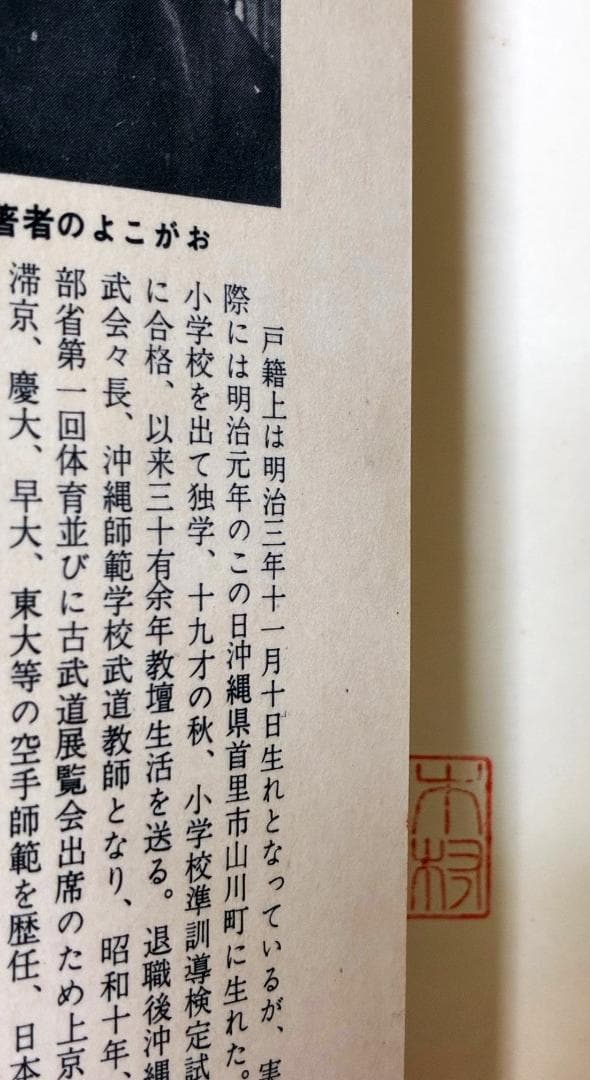 著者のよこがお
戸籍上は明治三年十一月十日生れとなっているが、実
際には明治元年のこの日沖縄県首里市山川町に生れた。
小学校を出て独学、十九才の秋、小学校準訓導検定試
に合格、以来三十有余年教壇生活を送る。退職後沖縄
武会々長、沖縄師範学校武道教師となり、昭和十年、
部省第一回体育並びに古武道展覧会出席のため上京
滞京、慶大、早大、東大等の空手師範を歴任、日本
木村